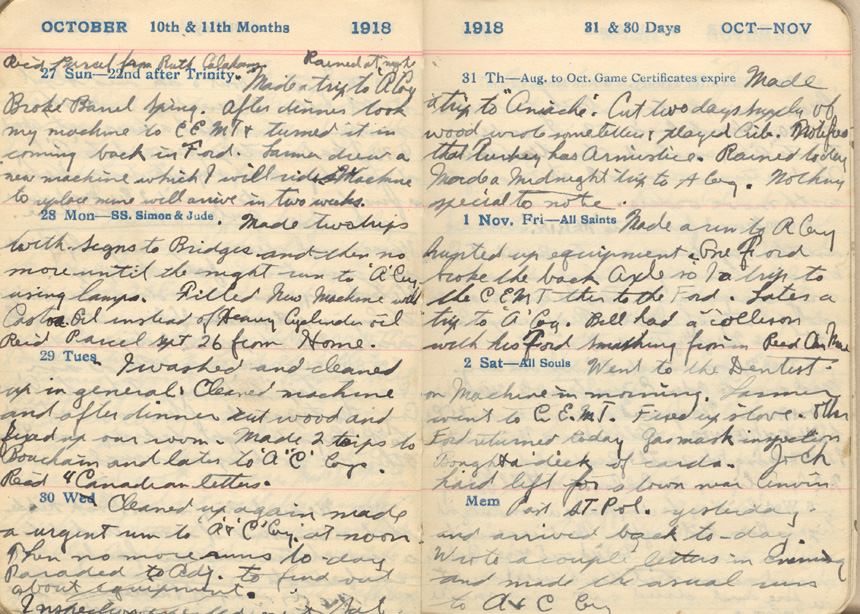 OCTOBER 10th & 11th Months 1918
Recd Parcel from Ruth Calahan. Rained at night
27 Sun—22nd after Trinity. Made a trip to "A" Coy
Broke Barrel Spring. After dinner took
my machine to C E M T & turned it in
coming back in Ford. Larmer drew a
new machine which I will ride. Machine
to replace mine will arrive in two weeks.
28 Mon—SS. Simon & Jude. Made two trips
with Signs to Bridges and then no
more until the night run to "A" Coy
using lamps. Filled New Machine with
Castor Oil instead of Heavy Cylinder oil
Recd Parcel No 26 from Home.
29 Tues I washed and cleaned
up in general. Cleaned machine
and after dinner cut wood and
fixed up our room. Made 2 trips to
Bouchain and later to "A" "C" Coys.
Recd 4 Canadian letters.
30 Wed Cleaned up again made
a urgent run to "A" & "C" Coy. at noon
Then no more runs to-day
Paraded to Adj. to find out
about equipment.
1918 31 & 30 Days OCT—NOV
31 Th—Aug. to Oct. Game Certificates expire Made
a trip to "Aniche". Cut two days supply of
wood wrote some letters & played Crib. Notified
that Turkey has Armistice. Rained to-day
Made a Midnight trip to A Coy. Nothing
special to note.
1 Nov. Fri—All Saints Made a run to A Coy
hunted up equipment. One Ford
broke the back Axle so I a trip to
the C E M T then to the Ford. Later a
trip to "A" Coy. Bell had a collision
with his Ford smashing in Recd Can Mail
2 Sat—All Souls Went to the Dentist
on Machine in morning. Larmer
went to C. E. M. T. Fixed up stove. Other
Ford returned today Gas mask inspection
Bought a deck of cards. Jock
had left for a town near
Mem Past St-Pol. yesterday
and arrived back to-day.
Wrote a couple letters in Evening
and made the usual runs
to A & C Coy